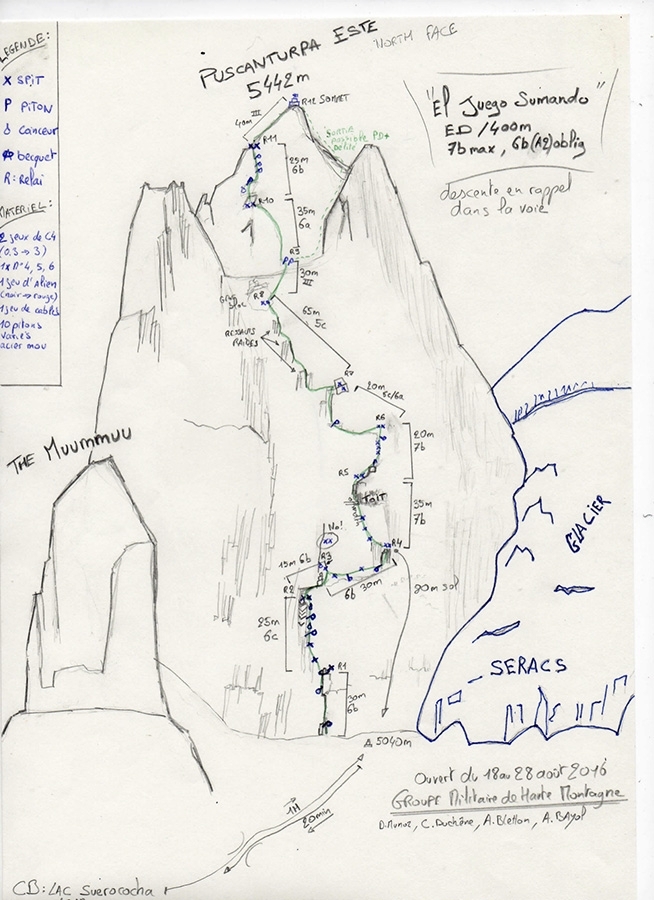 PUSCANTURPA ESTE
NORTH FACE
5442m
LEGENDE:
x SPIT
P PITON
coinceur
becquet
R: Relai
MATERIEL:
2 jeux de C4
(0.3 → 3)
1x N°4, 5, 6
1 jeu d'Alien
(noir → rouge)
1 jeu de cables
10 pitons
variés
acier mou
"El Juego Sumando"
ED / 400m
7b max, 6b (A2) oblig
descente en rappel
dans la voie
R12 SOMMET
III
40m
PD+
R11
25m
6b
R10
35m
6a
R9
30m
III
R8
65m
5c
RESSAUTS
RAIDES
R7
20m
5c/6a
R6
20m
7b
R5
TOIT
35m
7b
No!
R4
R3
15m 6b
30m
6b
20m sol
R2
25m
6c
R1
30m
6b
THE MUUMMUU
GLACIER
SERACS
5040m
1H
20min
CB: LAC Suerococha
Ouvert du 18 au 28 août 2016
GROUPE Militaire de Haute Montagne
D. Munoz, C. Duchêne, A. Bletton, A. BAyol